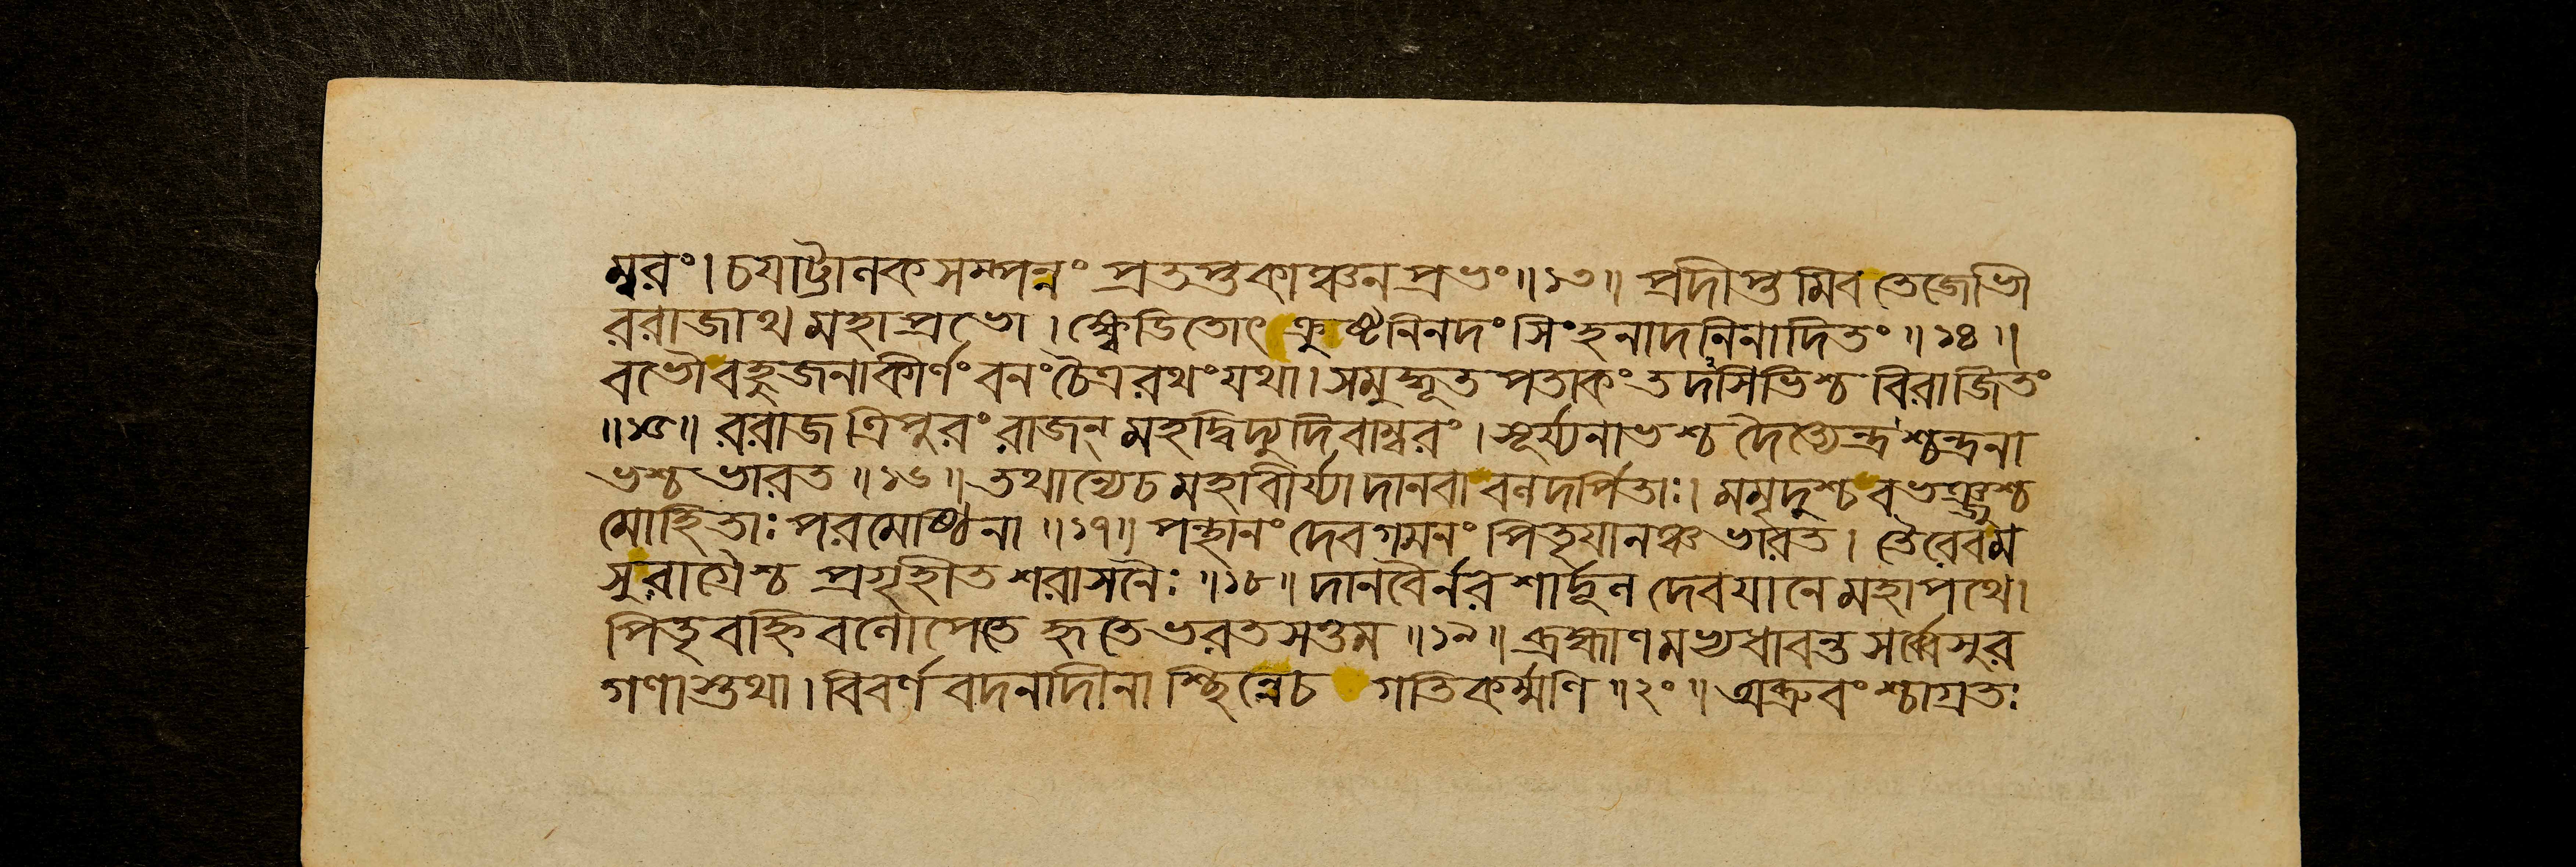 ম্বরং। চযাট্টানকসম্পন্নং প্রতপ্তকাঞ্চনপ্রভং॥১৩॥ প্রদীপ্তমিব তেজোভী
ররাজাথ মহাপ্রভো। ক্ষ্বেডিতোৎক্রুষ্টনিনদং সিংহনাদনিনাদিতং॥১৪॥
বভৌ বহুজনাকীর্ণং বনং চৈত্ররথং যথা। সমুদ্ধূতপতাকং তদসিভিশ্চ বিরাজিতং
॥১৫॥ ররাজ ত্রিপুরং রাজন্ মহদ্বিদ্যুদিবাম্বরং। সূর্য্যনাভশ্চ দৈত্যেন্দ্রশ্চন্দ্রনা
ভশ্চ ভারত॥১৬॥ তথান্যেচ মহাবীর্য্যা দানবা বলদর্পিতাঃ। মমৃদুশ্চ বভঞ্জুশ্চ
মোহিতাঃ পরমেষ্ঠিনা॥১৭॥ পন্থানং দেবগমনং পিতৃযানঞ্চ ভারত। তৈরেবম
সুরাগ্রৈশ্চ প্রগৃহীতশরাসনৈঃ॥১৮॥ দানবৈর্নরশার্দ্দূল দেবযানে মহাপথে।
পিতৃবহ্নিবলোপেতে হৃতে ভরতসত্তম॥১৯॥ ব্রহ্মাণমভ্যধাবন্ত সর্ব্বে সুর
গণাস্তথা। বিবর্ণবদনাদীনা শ্ছিন্নেচ গতিকর্ম্মণি॥২০॥ অব্রুবংশ্চাগ্রতঃ